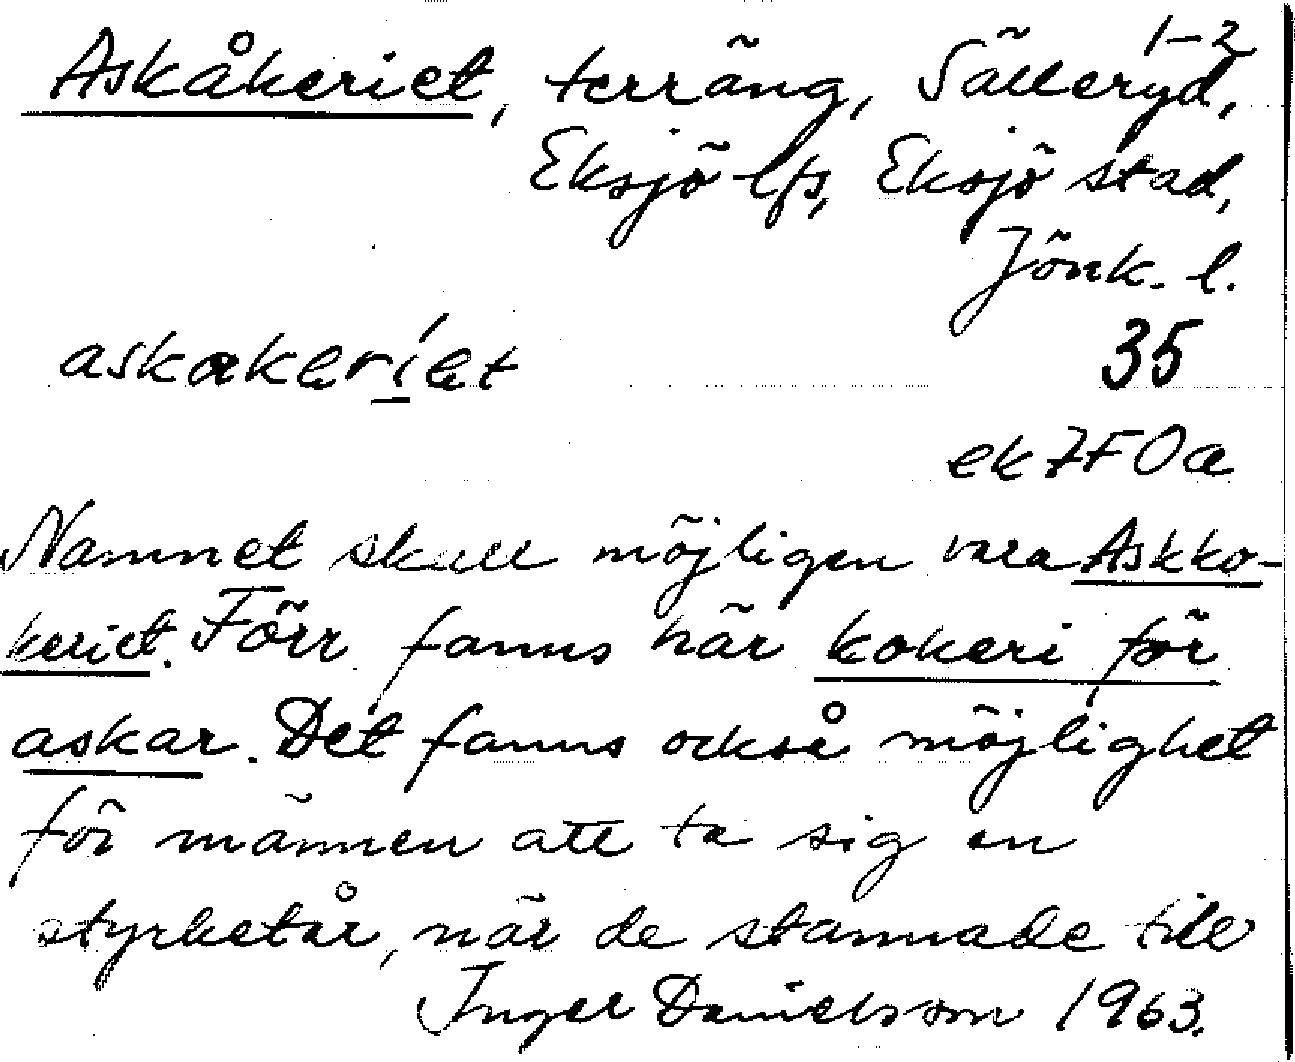 1-2
Askåkeriet, terräng, Sälleryd,
Eksjö lfs, Eksjö stad,
Jönk. l.
askakeriet 35
ek 7F0a
Namnet skall möjligen vara Askko-
keriet. Förr fanns här kokeri för
askar. Det fanns också möjlighet
för männen att ta sig en
styrketår, när de stannade till
Inger Danielsson 1963.